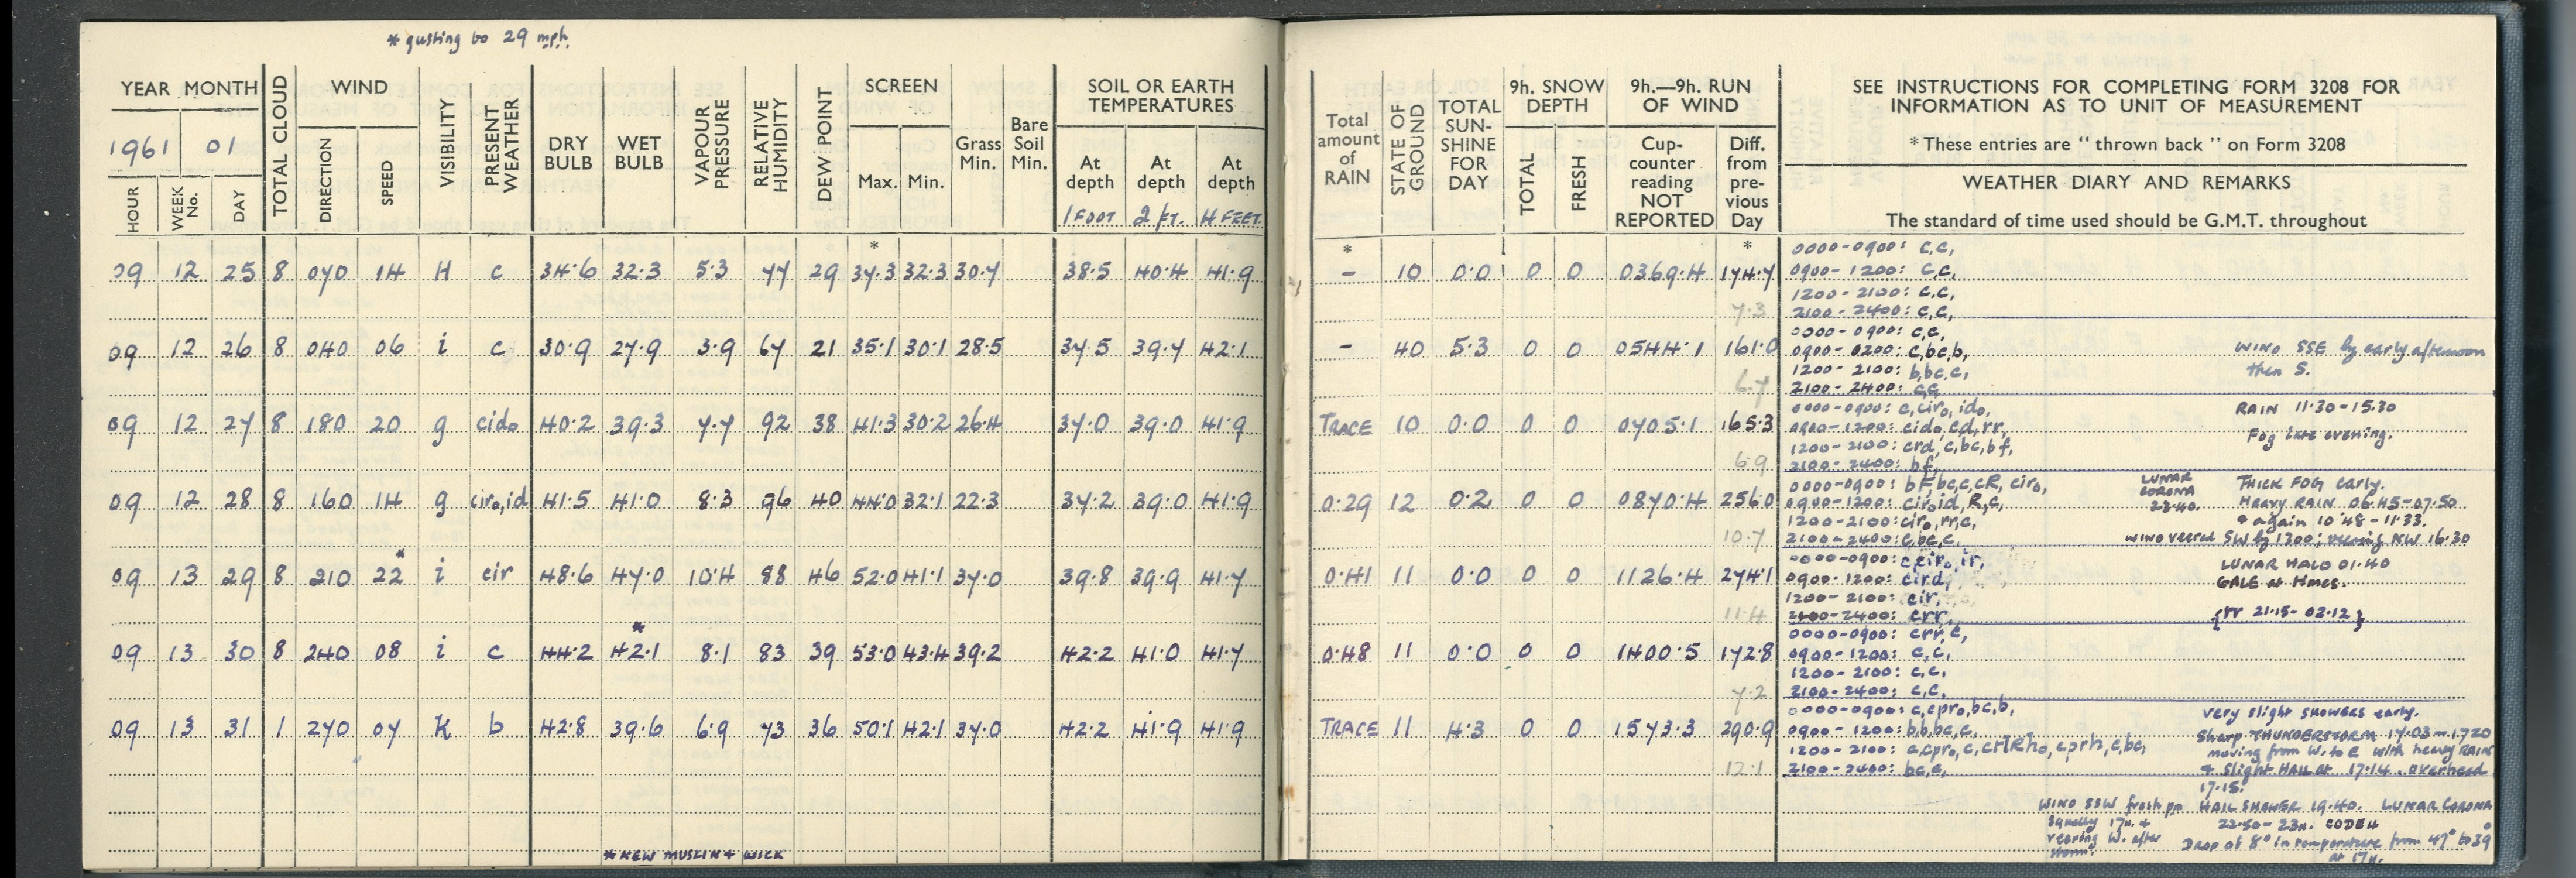 * gusting to 29 mph.
YEAR MONTH
1961 01
HOUR WEEK No. DAY TOTAL CLOUD WIND DIRECTION SPEED VISIBILITY PRESENT WEATHER DRY BULB WET BULB VAPOUR PRESSURE RELATIVE HUMIDITY DEW POINT SCREEN Max. Min. Grass Min. Bare Soil Min. SOIL OR EARTH TEMPERATURES At depth 1 FOOT At depth 2 FT. At depth 4 FEET.
*
09 12 25 8 070 14 H c 34.6 32.3 5.3 77 29 37.3 32.3 30.7 38.5 40.4 41.9
09 12 26 8 040 06 i c 30.9 27.9 3.9 67 21 35.1 30.1 28.5 37.5 39.7 42.1
09 12 27 8 180 20 g cido 40.2 39.3 7.7 92 38 41.3 30.2 26.4 37.0 39.0 41.9
09 12 28 8 160 14 g ciro,id 41.5 41.0 8.3 96 40 44.0 32.1 22.3 37.2 39.0 41.9
*
09 13 29 8 210 22 i cir 48.6 47.0 10.4 88 46 52.0 41.1 37.0 39.8 39.9 41.7
*
09 13 30 8 240 08 i c 44.2 42.1 8.1 83 39 53.0 43.4 39.2 42.2 41.0 41.7
09 13 31 1 270 07 K b 42.8 39.6 6.9 73 36 50.1 42.1 37.0 42.2 41.9 41.9
* NEW MUSLIN & WICK
Total amount of RAIN STATE OF GROUND TOTAL SUN-SHINE FOR DAY 9h. SNOW DEPTH TOTAL FRESH 9h.—9h. RUN OF WIND Cup-counter reading NOT REPORTED Diff. from pre-vious Day
SEE INSTRUCTIONS FOR COMPLETING FORM 3208 FOR
INFORMATION AS TO UNIT OF MEASUREMENT
* These entries are "thrown back" on Form 3208
WEATHER DIARY AND REMARKS
The standard of time used should be G.M.T. throughout
* *
0000-0900: c,c,
– 10 0.0 0 0 0369.4 174.7 0900-1200: c,c,
1200-2100: c,c,
7.3 2100-2400: c,c,
0000-0900: c,c,
– 40 5.3 0 0 0544.1 161.0 0900-0200: c,bc,b, WIND SSE by early afternoon
1200-2100: b,bc,c, then S.
6.7 2100-2400: c,c
0000-0900: c,ciro,ido, RAIN 11.30-15.30
TRACE 10 0.0 0 0 0705.1 165.3 0900-1200: cido,cd,rr,
1200-2100: crd,c,bc,bf, Fog late evening.
6.9 2100-2400: bf,
0000-0900: bF,bc,c,cR,ciro, LUNAR CORONA 23.40. THICK FOG early.
0.29 12 0.2 0 0 0870.4 256.0 0900-1200: ciroid,R,c, Heavy RAIN 06.45-07.50
1200-2100: ciro,rr,c, & again 10.48-11.33.
10.7 2100-2400: c,bc,c, WIND veered SW by 1300; veering NW 16.30
0000-0900: c,ciro,ir, LUNAR HALO 01.40
0.41 11 0.0 0 0 1126.4 274.1 0900-1200: cird, GALE at times.
1200-2100: cir,
11.4 2100-2400: crr, {rr 21.15-02.12}
0000-0900: crr,c,
0.48 11 0.0 0 0 1400.5 172.8 0900-1200: c,c,
1200-2100: c,c,
7.2 2100-2400: c,c,
0000-0900: c,cpro,bc,b, very slight SHOWERS early.
TRACE 11 4.3 0 0 1573.3 290.9 0900-1200: b,b,bc,c, Sharp THUNDERSTORM 17.03 1720
1200-2100: moving from W. to E with heavy RAIN
12.1 2100-2400: bc,c, & slight HAIL at 17.14 overhead
17.15.
WIND SSW fresh HAIL SHOWER 19.40. LUNAR CORONA
squally 17h. & 22.50-23h. CODE 4
veering W. after Drop of 8° in temperature from 47° to 39°
storm. at 17h.